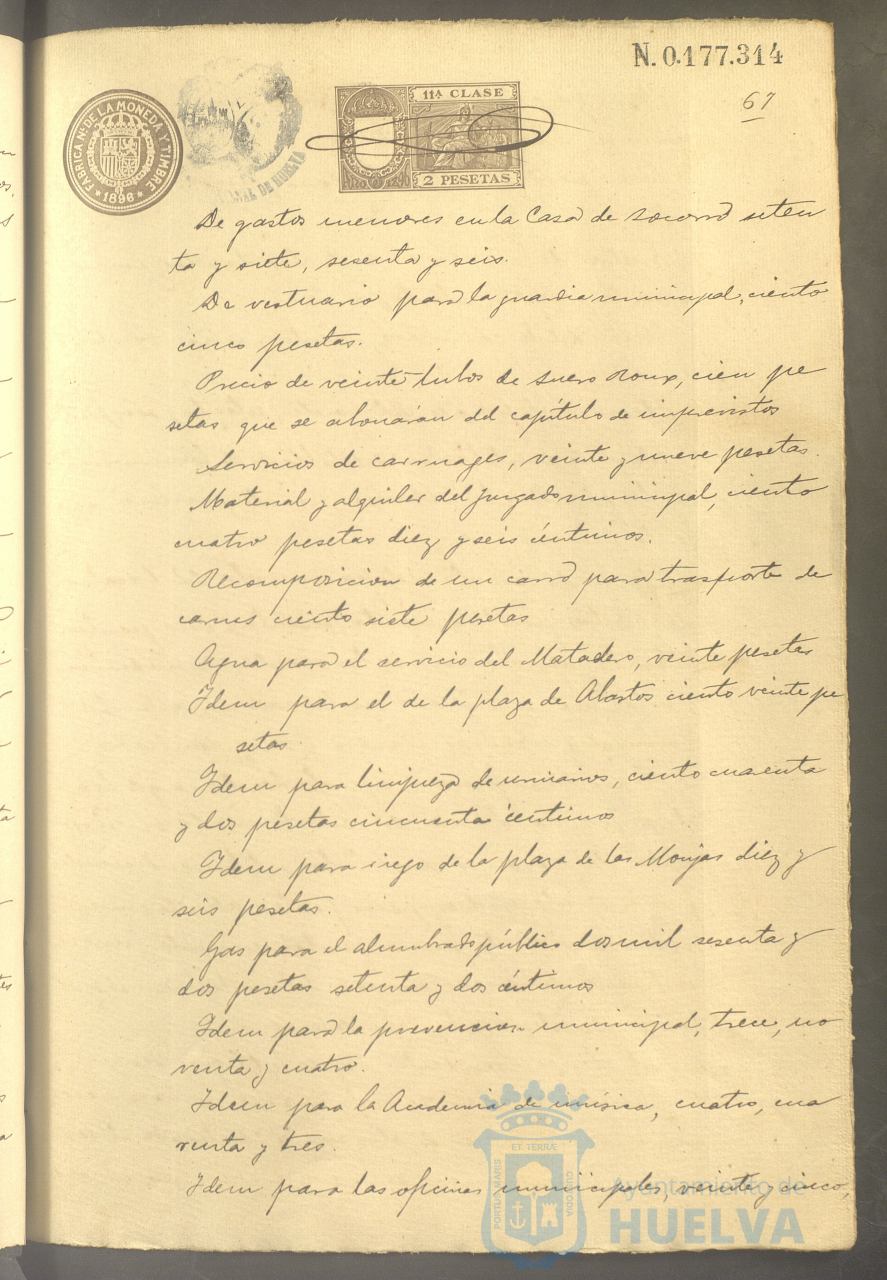 N. 0.177.314
67
FÁBRICA Nl. DE LA MONEDA Y TIMBRE
* 1896 *
DE HUELVA
11ª CLASE
2 PESETAS
De gastos menores en la Casa de Socorro seten
ta y siete, sesenta y seis.
De vestuario para la guardia municipal, ciento
cinco pesetas.
Precio de veinte tubos de suero Roux, cien pe
setas que se abonarán del capítulo de imprevistos
Servicios de carruages, veinte y nueve pesetas.
Material y alquiler del Juzgado municipal, ciento
cuatro pesetas diez y seis céntimos.
Recomposicion de un carro para trasporte de
carnes ciento siete pesetas
Agua para el servicio del Matadero, veinte pesetas
Idem para el de la plaza de Abastos ciento veinte pe
setas.
Idem para limpieza de urinarios, ciento cuarenta
y dos pesetas cincuenta céntimos
Idem para riego de la plaza de las Monjas diez y
seis pesetas.
Gas para el alumbrado público dos mil sesenta y
dos pesetas setenta y dos céntimos
Idem para la prevencion municipal, trece, no
venta y cuatro.
Idem para la Academia de música, cuatro, cua
renta y tres.
Idem para las oficinas municipales, veinte y cinco,
PORTUS MARIS
ET TERRÆ
CUSTODIA
Ayuntamiento de
HUELVA